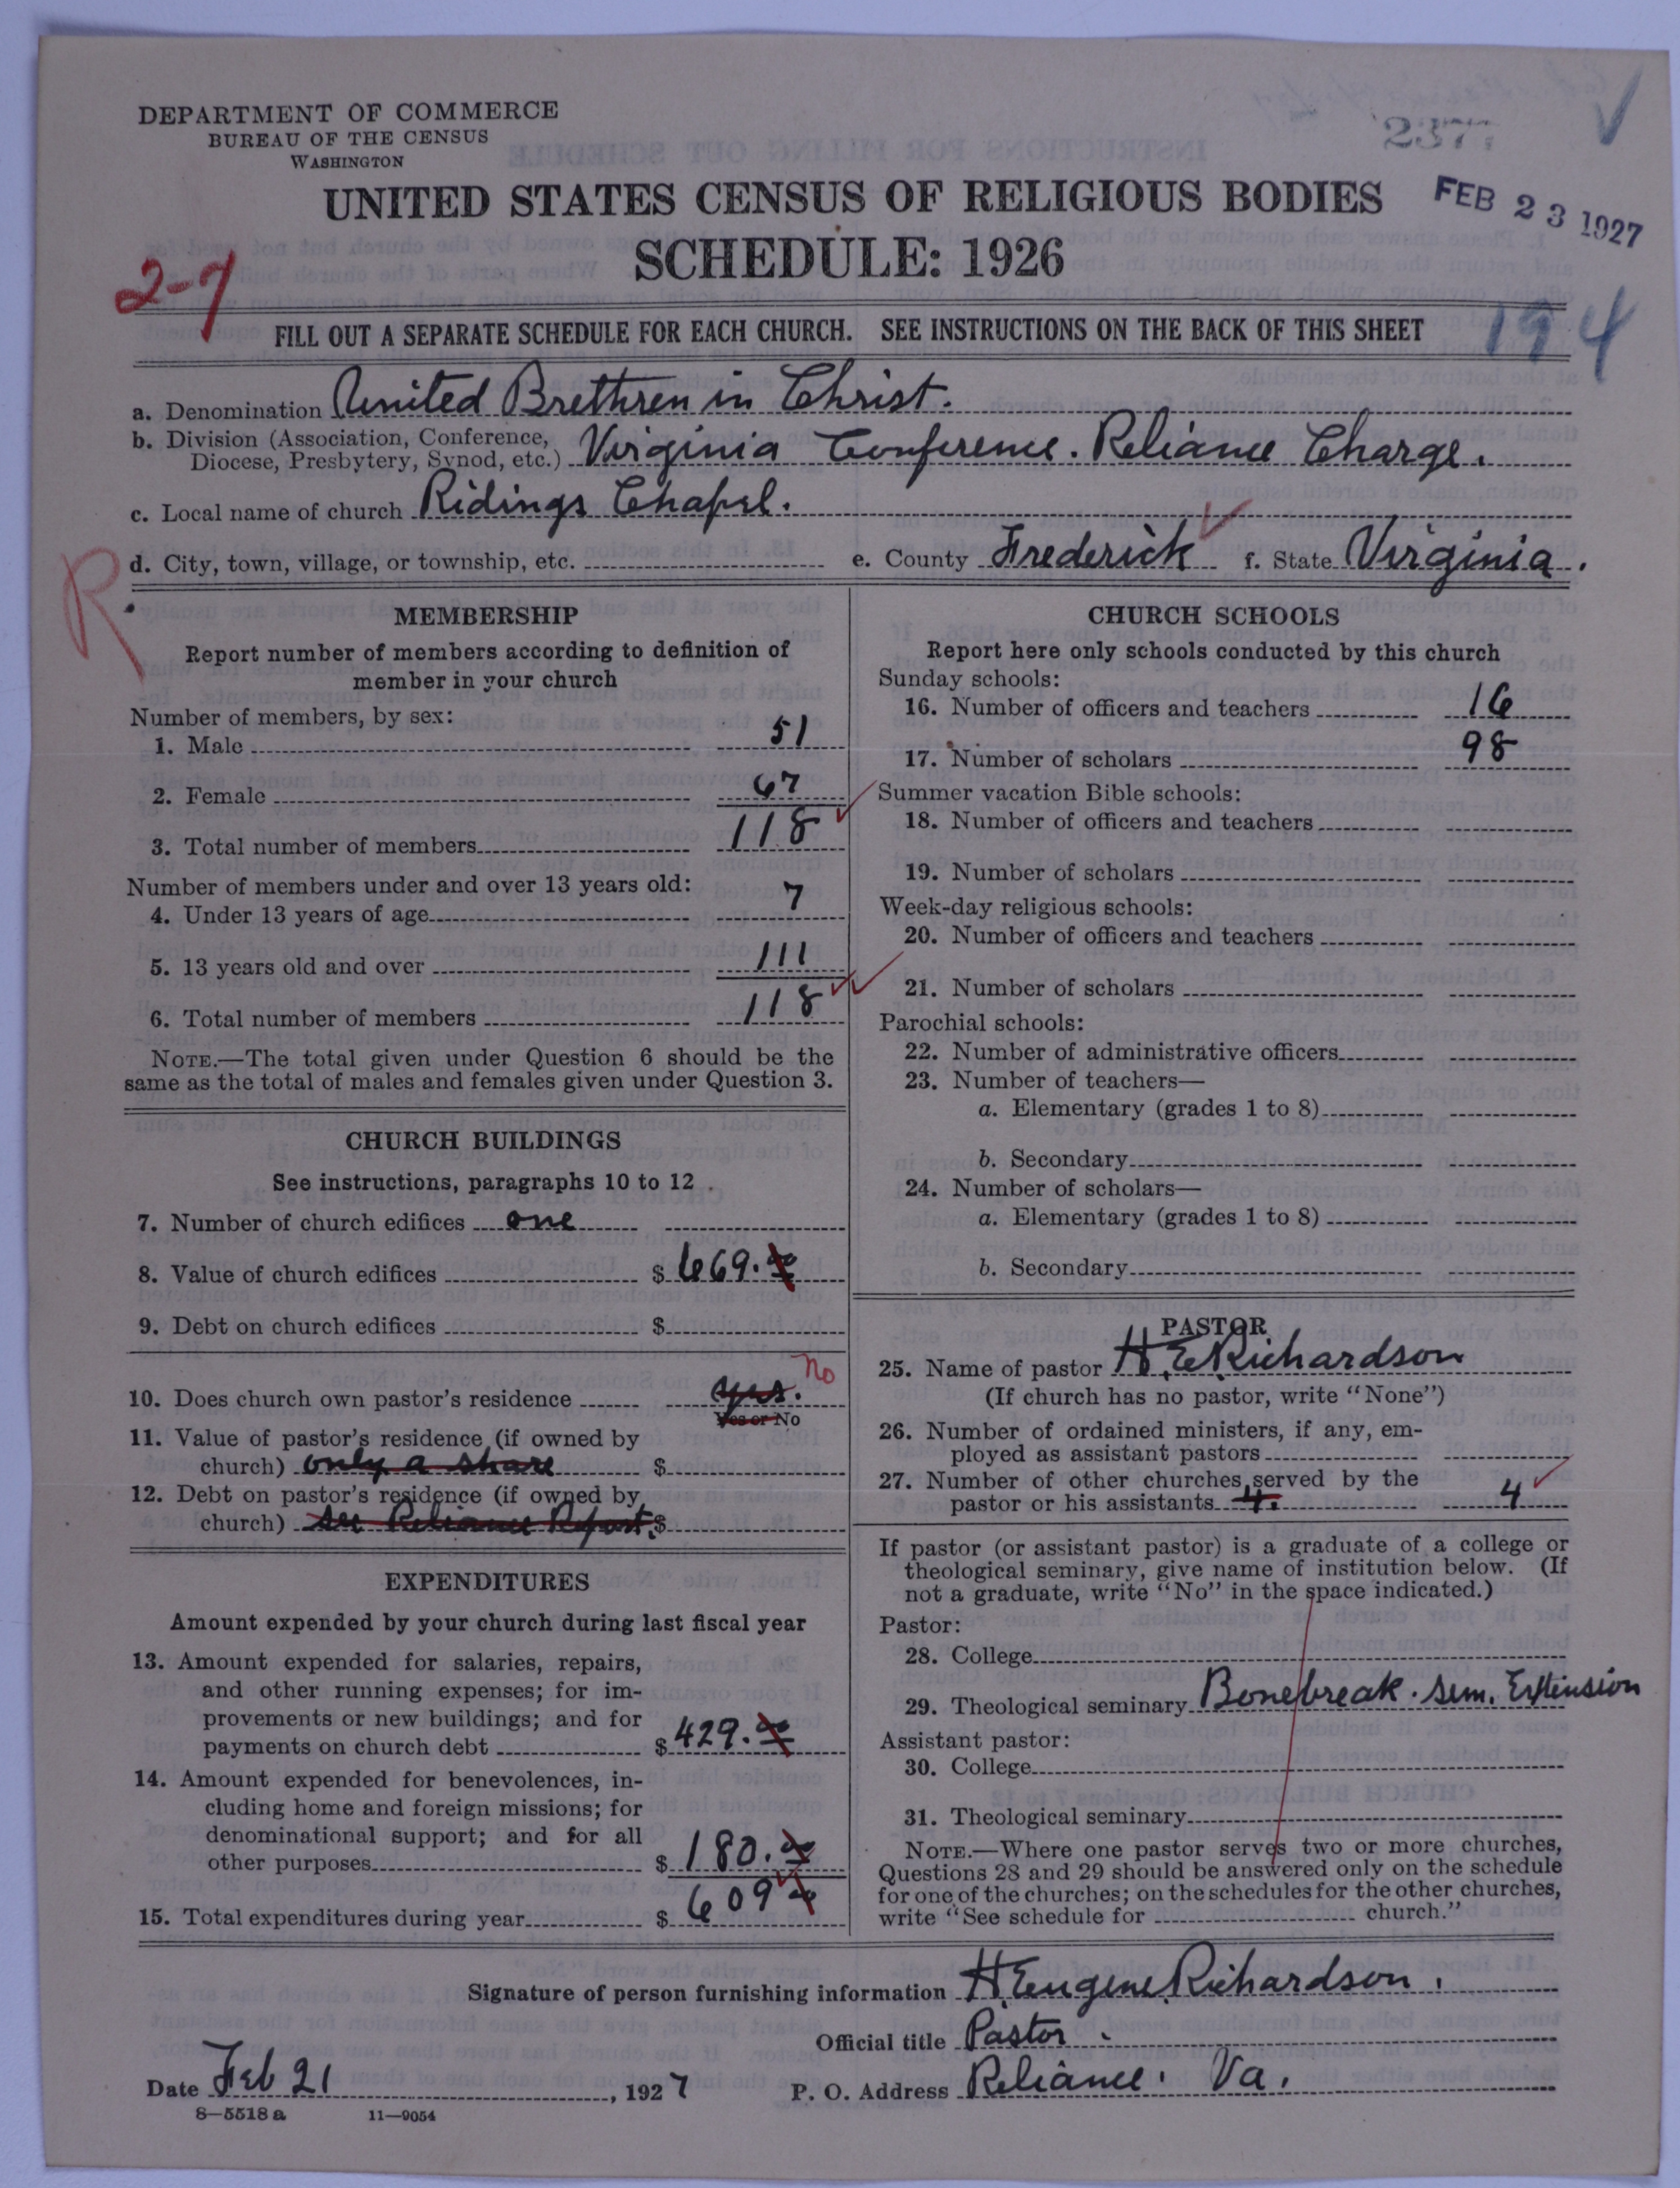 DEPARTMENT OF COMMERCE
BUREAU OF THE CENSUS
WASHINGTON
UNITED STATES CENSUS OF RELIGIOUS BODIES
SCHEDULE: 1926
FEB 23 1927
2-7
194
FILL OUT A SEPARATE SCHEDULE FOR EACH CHURCH. SEE INSTRUCTIONS ON THE BACK OF THIS SHEET
a. Denomination United Brethren in Christ.
b. Division (Association, Conference, Diocese, Presbytery, Synod, etc.) Virginia Conference. Reliance Charge.
c. Local name of church Ridings Chapel.
d. City, town, village, or township, etc. e. County Frederick f. State Virginia.
R
MEMBERSHIP
Report number of members according to definition of
member in your church
Number of members, by sex:
1. Male 51
2. Female 67
3. Total number of members 118
Number of members under and over 13 years old:
4. Under 13 years of age 7
5. 13 years old and over 111
6. Total number of members 118
NOTE.—The total given under Question 6 should be the
same as the total of males and females given under Question 3.
CHURCH BUILDINGS
See instructions, paragraphs 10 to 12
7. Number of church edifices one
8. Value of church edifices $ 669.00
9. Debt on church edifices $
10. Does church own pastor's residence yes. No
Yes or No
11. Value of pastor's residence (if owned by
church) only a share $
12. Debt on pastor's residence (if owned by
church) see Reliance Report. $
EXPENDITURES
Amount expended by your church during last fiscal year
13. Amount expended for salaries, repairs,
and other running expenses; for im-
provements or new buildings; and for
payments on church debt $ 429.00
14. Amount expended for benevolences, in-
cluding home and foreign missions; for
denominational support; and for all
other purposes $ 180.00
15. Total expenditures during year $ 609
CHURCH SCHOOLS
Report here only schools conducted by this church
Sunday schools:
16. Number of officers and teachers 16
17. Number of scholars 98
Summer vacation Bible schools:
18. Number of officers and teachers
19. Number of scholars
Week-day religious schools:
20. Number of officers and teachers
21. Number of scholars
Parochial schools:
22. Number of administrative officers
23. Number of teachers—
a. Elementary (grades 1 to 8)
b. Secondary
24. Number of scholars—
a. Elementary (grades 1 to 8)
b. Secondary
PASTOR
25. Name of pastor H. E. Richardson
(If church has no pastor, write "None")
26. Number of ordained ministers, if any, em-
ployed as assistant pastors
27. Number of other churches served by the
pastor or his assistants 4. 4
If pastor (or assistant pastor) is a graduate of a college or
theological seminary, give name of institution below. (If
not a graduate, write "No" in the space indicated.)
Pastor:
28. College
29. Theological seminary Bonebreak. Sem. Extension
Assistant pastor:
30. College
31. Theological seminary
NOTE.—Where one pastor serves two or more churches,
Questions 28 and 29 should be answered only on the schedule
for one of the churches; on the schedules for the other churches,
write "See schedule for church."
Signature of person furnishing information H. Eugene Richardson.
Official title Pastor.
Date Feb 21, 1927 P. O. Address Reliance. Va.
8—5518 a 11—9054